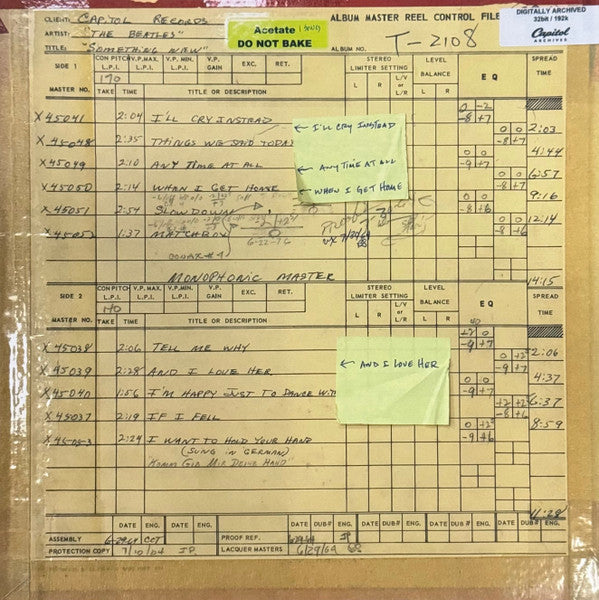 CLIENT: CAPITOL RECORDS
ARTIST: "THE BEATLES"
TITLE: "SOMETHING NEW"
Acetate
DO NOT BAKE
ALBUM MASTER REEL CONTROL FILE
ALBUM NO. T-2108
DIGITALLY ARCHIVED
32bit / 192k
Capitol
ARCHIVES
SIDE 1 CON PITCH L.P.I. V.P.MAX. L.P.I. V.P.MIN. L.P.I. V.P. GAIN EXC. RET. STEREO LIMITER SETTING L R L/V or L/R LEVEL BALANCE L R EQ SPREAD TIME
170
MASTER NO. TAKE TIME TITLE OR DESCRIPTION
X45041 2:04 I'LL CRY INSTEAD 0 -2 -8 +7
X45048 2:35 THINGS WE SAID TODAY 0 0 -8 +7 2:03
X45049 2:10 ANY TIME AT ALL 0 0 -9 +7 4:44
X45050 2:14 WHEN I GET HOME 0 0 -8 +7 6:57
X45051 2:54 SLOWDOWN 0 0 -8 +6 9:16
X45052 1:37 MATCHBOX 0 0 -8 +7 12:14
← I'LL CRY INSTEAD
← ANY TIME AT ALL
← WHEN I GET HOME
6-22-76
MONOPHONIC MASTER
14:15
SIDE 2 CON PITCH L.P.I. V.P. MAX. L.P.I. V.P.MIN. L.P.I. V.P. GAIN EXC. RET. STEREO LIMITER SETTING L R L/V or L/R LEVEL BALANCE L R EQ SPREAD TIME
170
MASTER NO. TAKE TIME TITLE OR DESCRIPTION
X45038 2:06 TELL ME WHY +2 0 -9 +7
X45039 2:28 AND I LOVE HER 0 +2 -8 +7 2:06
X45040 1:56 I'M HAPPY JUST TO DANCE WITH 0 0 -9 +7 4:37
X45037 2:19 IF I FELL +2 +2 -8 +6 6:37
2:24 I WANT TO HOLD YOUR HAND 0 +2 -9 +6 8:59
(SUNG IN GERMAN)
"KOMM GIB MIR DEINE HAND"
← AND I LOVE HER
11:28
DATE ENG. DATE ENG. DATE ENG. DATE DUB# ENG. DATE DUB# ENG. DATE DUB# ENG. DATE DUB# ENG.
ASSEMBLY PROOF REF.
PROTECTION COPY 7/10/64 J.P. LACQUER MASTERS 6/29/64